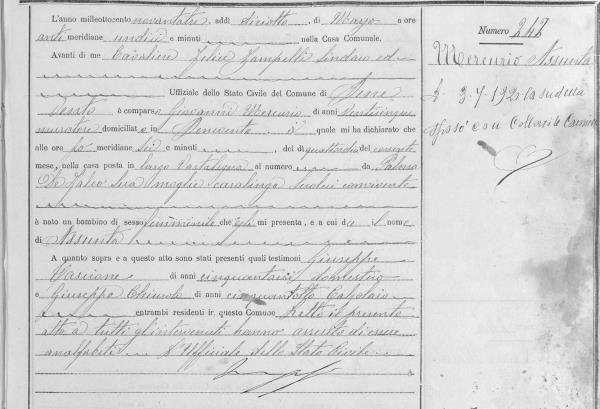 L'anno milleottocento novantatre, addì diciotto, di Maggio a ore
anti meridiane undici e minuti nella Casa Comunale.
Avanti di me Cavaliere Felice Zampelli Sindaco ed
Uffiziale dello Stato Civile del Comune di Bene
vento è comparso Giovanni Mercurio di anni venticinque
muratore domiciliato in Benevento il quale mi ha dichiarato che
alle ore meridiane sei e minuti del dì quattordici del corrente
mese, nella casa posta in largo al numero da Palma
De sua moglie casalinga seco lui convivente
è nato un bambino di sesso femminile che egli mi presenta, e a cui dà il nome
di Assunta
A quanto sopra e a questo atto sono stati presenti quali testimoni Giuseppe
di anni cinquantasei domestico
e Giuseppe di anni cinquantotto Calzolaio
entrambi residenti in questo Comune Letto il presente
atto a tutti gl'intervenuti hanno asserito di essere
analfabeti L'Uffiziale dello Stato Civile
Numero 242
Mercurio Assunta
3-7-192 la suddetta
sposò con Carmine